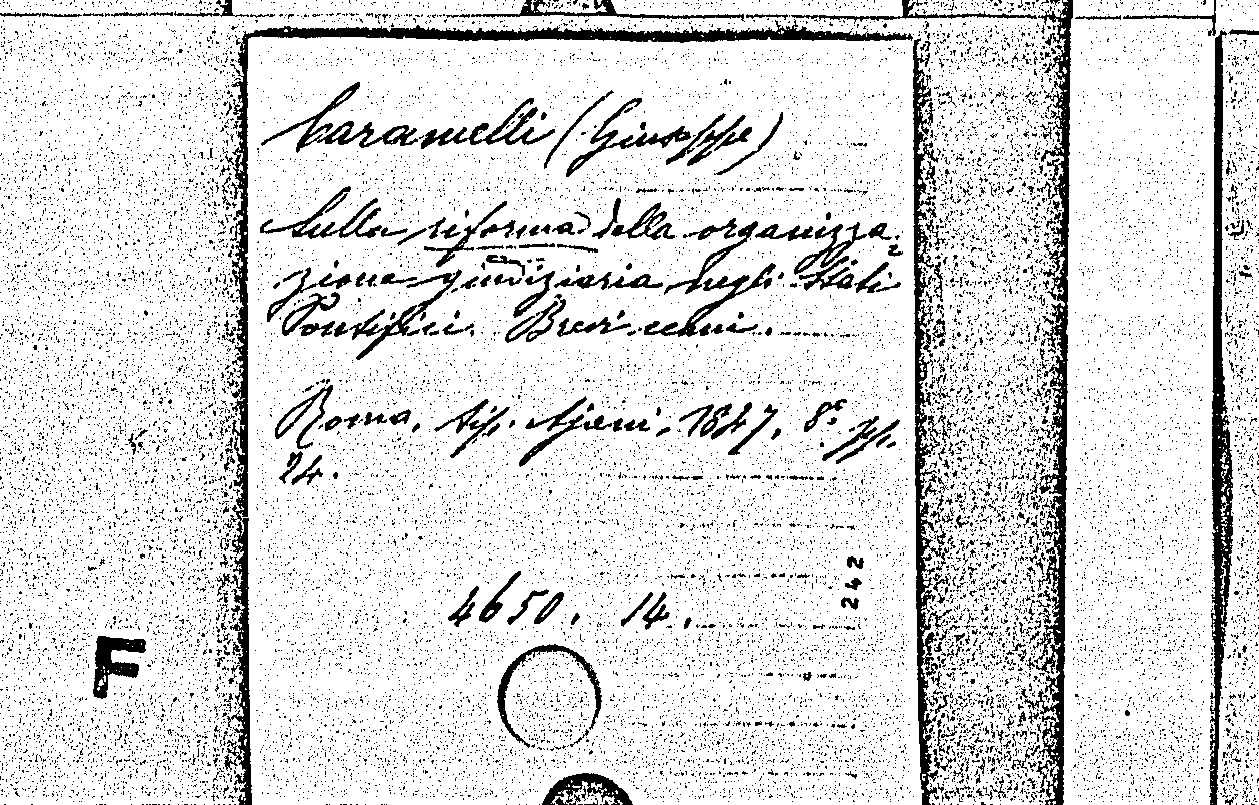 Caramelli (Giuseppe)
Sulla riforma della organizza-
zione giudiziaria negli Stati
Pontifici. Brevi cenni.
Roma, tip. Ajani, 1847, 8º pp.
24.
242
4650. 14.
F